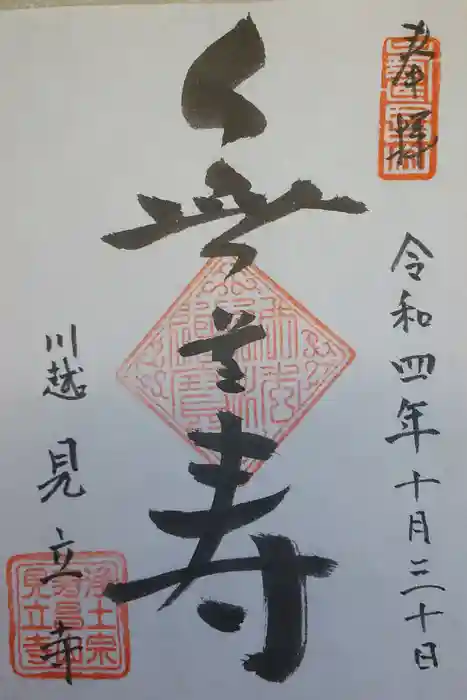 奉拝
令和四年十月三十日
無量寿
川越 見立寺
浄土宗
見立寺